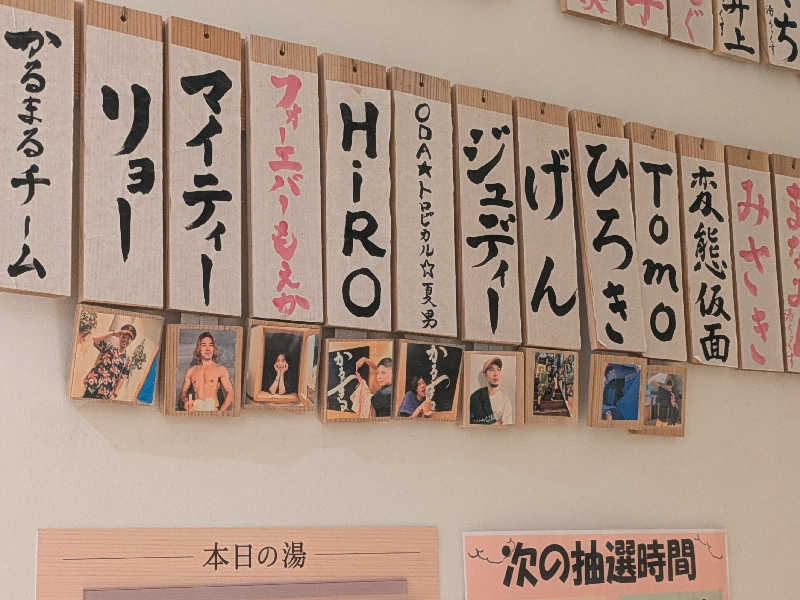 井上
かるまるチーム
リョー
マイティー
フォーエバーもえか
HiRO
ODA★トロピカル☆夏男
ジュディー
げん
ひろき
Tomo
変態仮面
みさき
かるまる
かるまる
本日の湯
次の抽選時間